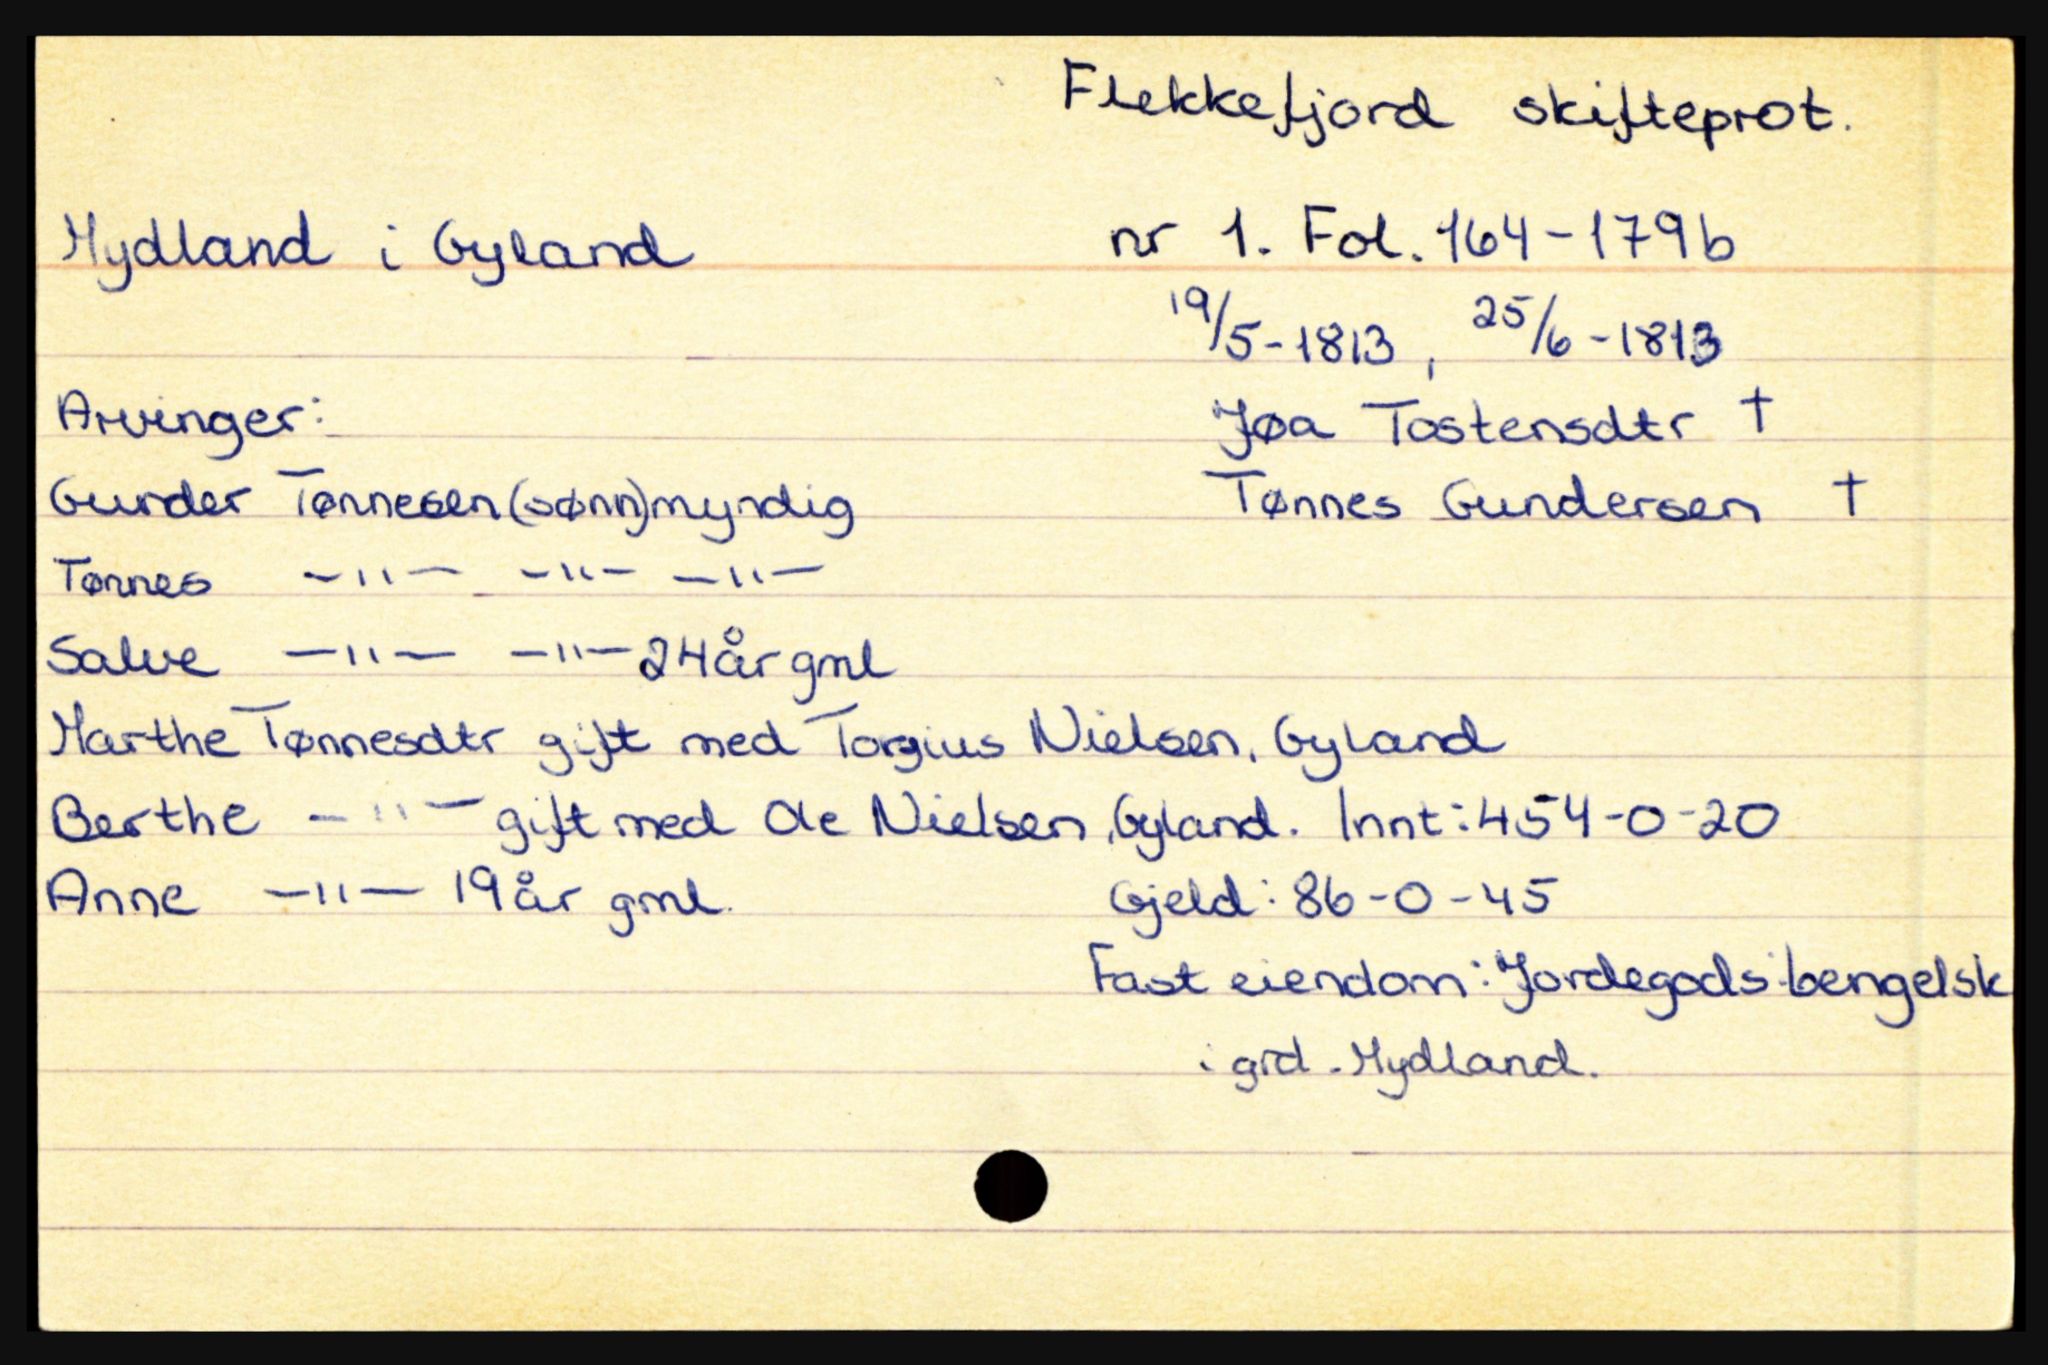 Flekkefjord skifteprot.
Mydland i Gyland nr 1. Fol. 164-179b
19/5-1813, 25/6-1813
Arvinger: Jøa Tostensdtr †
Gunder Tønnesen (sønn) myndig Tønnes Gundersen †
Tønnes -"- -"- -"-
Salve -"- -"- 24 år gml
Marthe Tønnesdtr gift med Torgius Nielsen, Gyland
Berthe -"- gift med Ole Nielsen, Gyland. Innt: 454-0-20
Anne -"- 19 år gml. Gjeld: 86-0-45
Fast eiendom: Jordegods: bengelsk
i grd. Mydland.